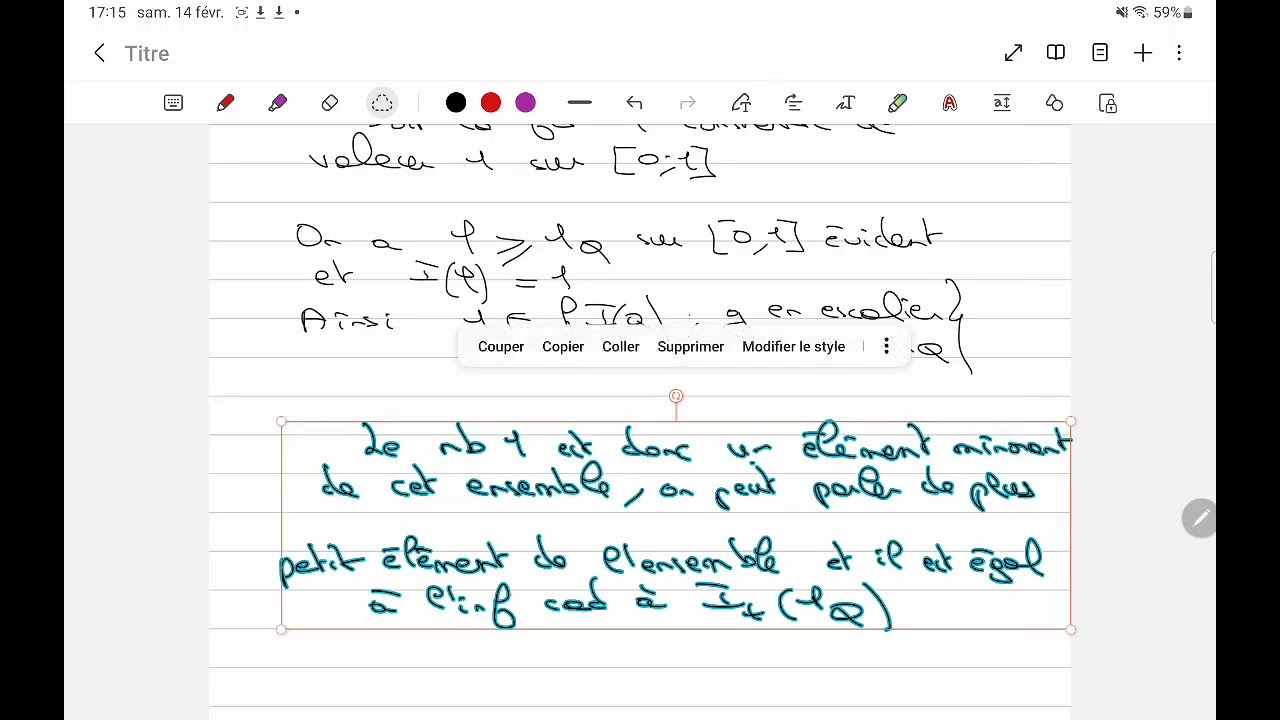 17:15 sam. 14 févr. 59%
Titre
valeur 1 sur [0;1]
On a φ ⩾ 1_Q sur [0,1] évident
et I(φ) = 1
Ainsi 1 ∈ { I(g) ; g en escalier
Couper Copier Coller Supprimer Modifier le style
Le nb 1 est donc un élément minorant
de cet ensemble, on peut parler de plus
petit élément de l'ensemble et il est égal
à l'inf cad à I₊(1_Q)